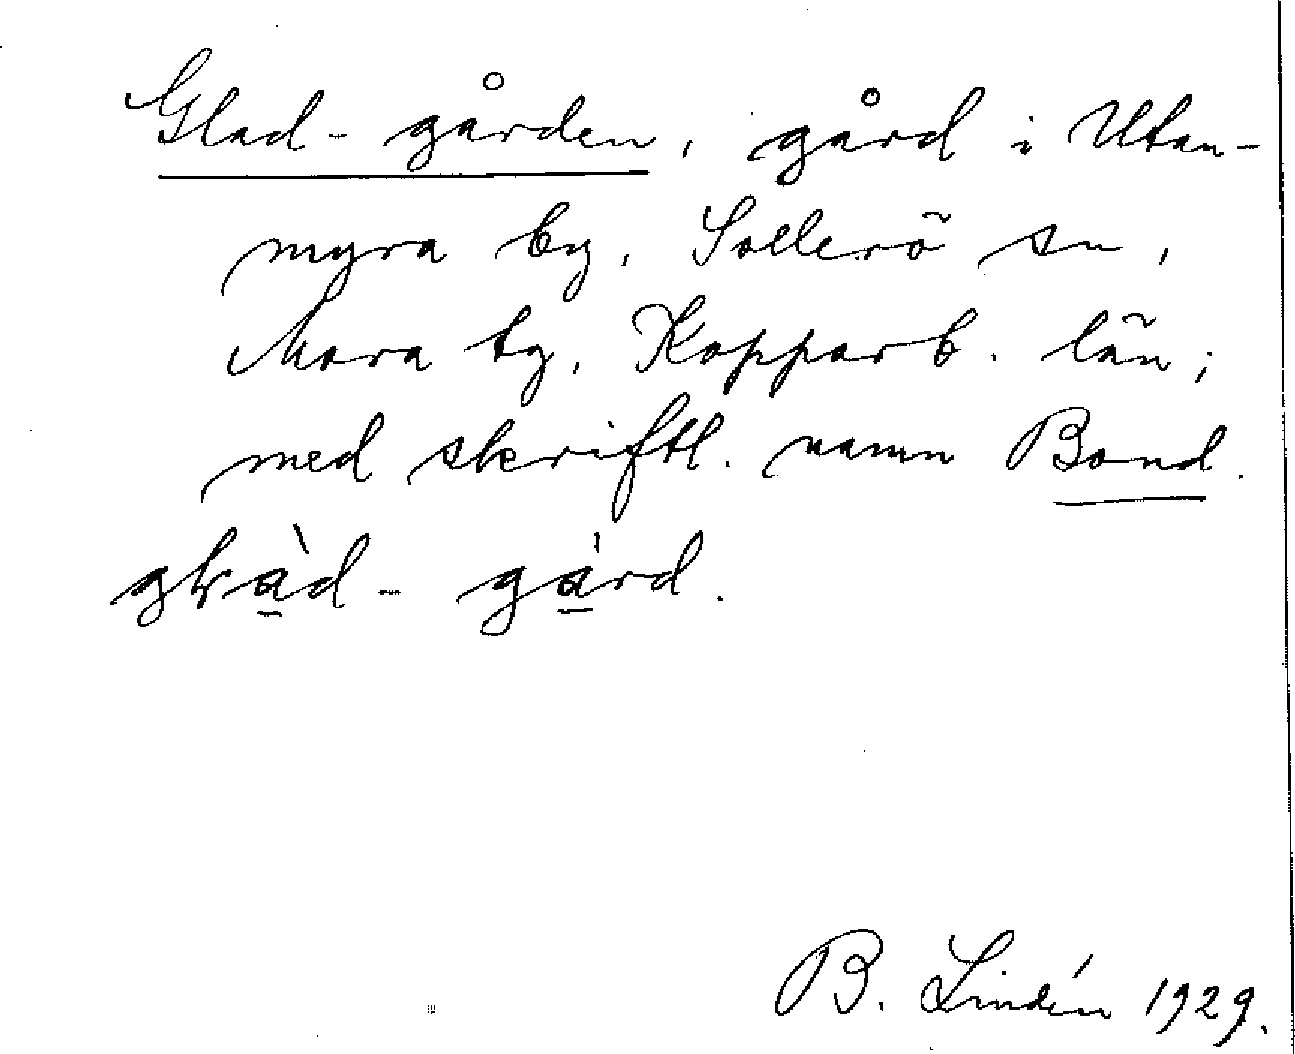 Glad-gården, gård i Utan-
myra by, Sollerö sn,
Mora tg, Kopparb. län;
med skriftl. namn Bond.
gɫà̱d- gá̱rd.
B. Lindén 1929.